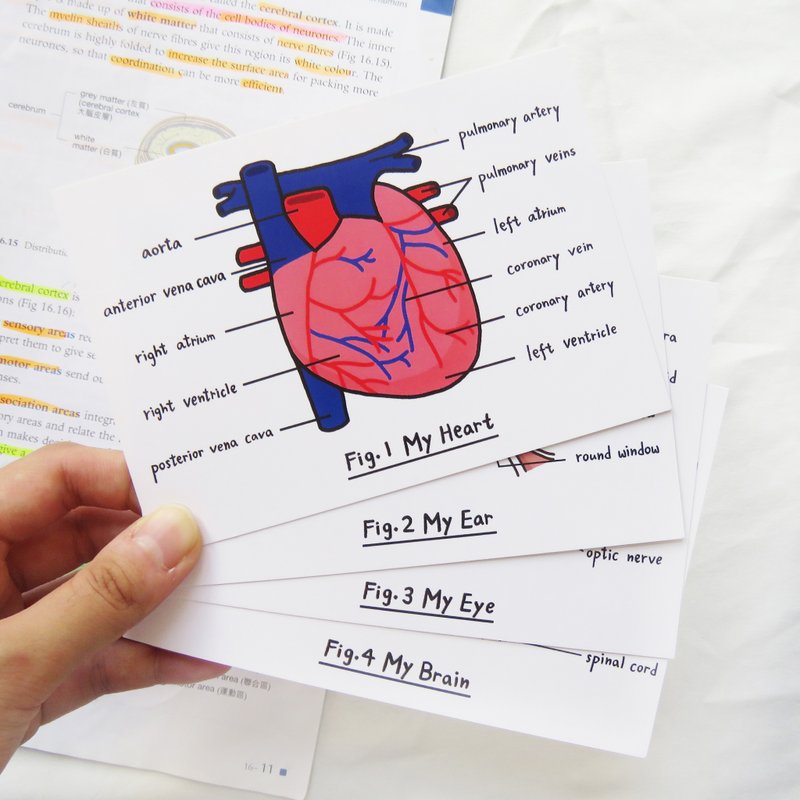 is made up of
called the cerebral cortex. It is made
that consists of the cell bodies of neurones. The
The myelin sheaths of white matter that consists of nerve fibres. The inner
cerebrum is highly folded to give this region its white colour. The
neurones, so that coordination can be more efficient.
of nerve fibres
(Fig 16.15).
increase the surface area for packing more
grey matter (灰質)
(cerebral cortex
大腦皮層)
cerebrum
white
matter (白質)
6.15 Distributi
cerebral cortex is
ons (Fig 16.16):
sensory areas rec
pret them to give se
motor areas send ou
nses.
sociation areas integr
ory areas and relate the
n makes deci
give a
pulmonary artery
pulmonary veins
left atrium
coronary vein
coronary artery
left ventricle
aorta
anterior vena cava
right atrium
right ventricle
posterior vena cava
Fig.1 My Heart
round window
Fig.2 My Ear
optic nerve
Fig.3 My Eye
spinal cord
Fig.4 My Brain
area (聯合區)
tor area (運動區)
16- 11